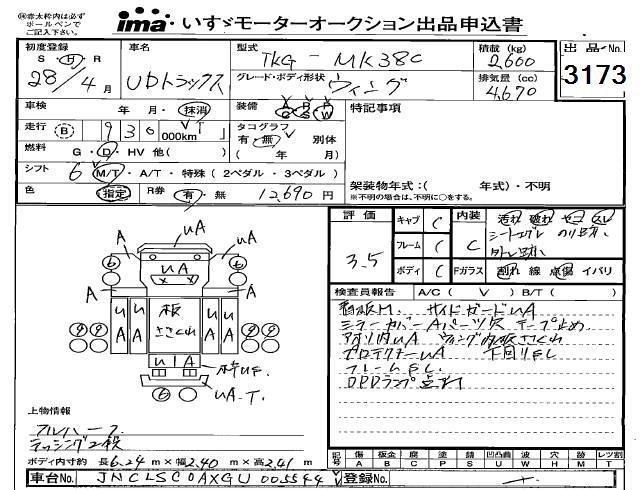 ㊟赤太枠内は必ず
ボールペンで
ご記入下さい。
ima いすゞモーターオークション出品申込書
初度登録 S・H・R 28年/4月
車名 UDトラックス
型式 TKG-MK38C
積載(kg) 2,600
出品No. 3173
グレード・ボディ形状 ウィング
排気量(cc) 4,670
車検 年・月・抹消
装備 A/C P/S P/W
特記事項
走行 B 930 000km VT
タコグラフ 有・無 別体
( 年 月)
燃料 G・D・HV 他( )
シフト 6 M/T・A/T・特殊(2ペダル・3ペダル)
架装物年式:( 年式)・不明
※不明の場合は、不明に○をする。
色 指定 R券 有・無 12,690円
評価 3.5
キャブ C
フレーム C
ボディ C
内装 C
汚れ 破れ コゲ スレ
シートコゲ のり跡
外し跡
Fガラス 割れ 線 点傷 イバリ
検査員報告 A/C( V) B/T( )
看板M. サイドガードuA
ミラーカバーAバーツ欠 テープ止め
アオリ内uA ウィング内板ささくれ
プロテクターuA 下回りFC
フレームFC
DPDランプ点灯
A uA uA A
uA
⑥ ⑥
A A
uA uA 板 ささくれ uA uA
④④ ④④
uIA
uA.T.
⑥
上物情報
アルハーフ
ラッシング2段
ボディ内寸約 長6.24m×幅2.40m×高2.41m
記号 傷A 板金B 腐C 塗P 錆S 凹凸曲U 波W 穴H 跡M 石T レツ割
車台No. JNCLSC0AXGU005544
登録No.